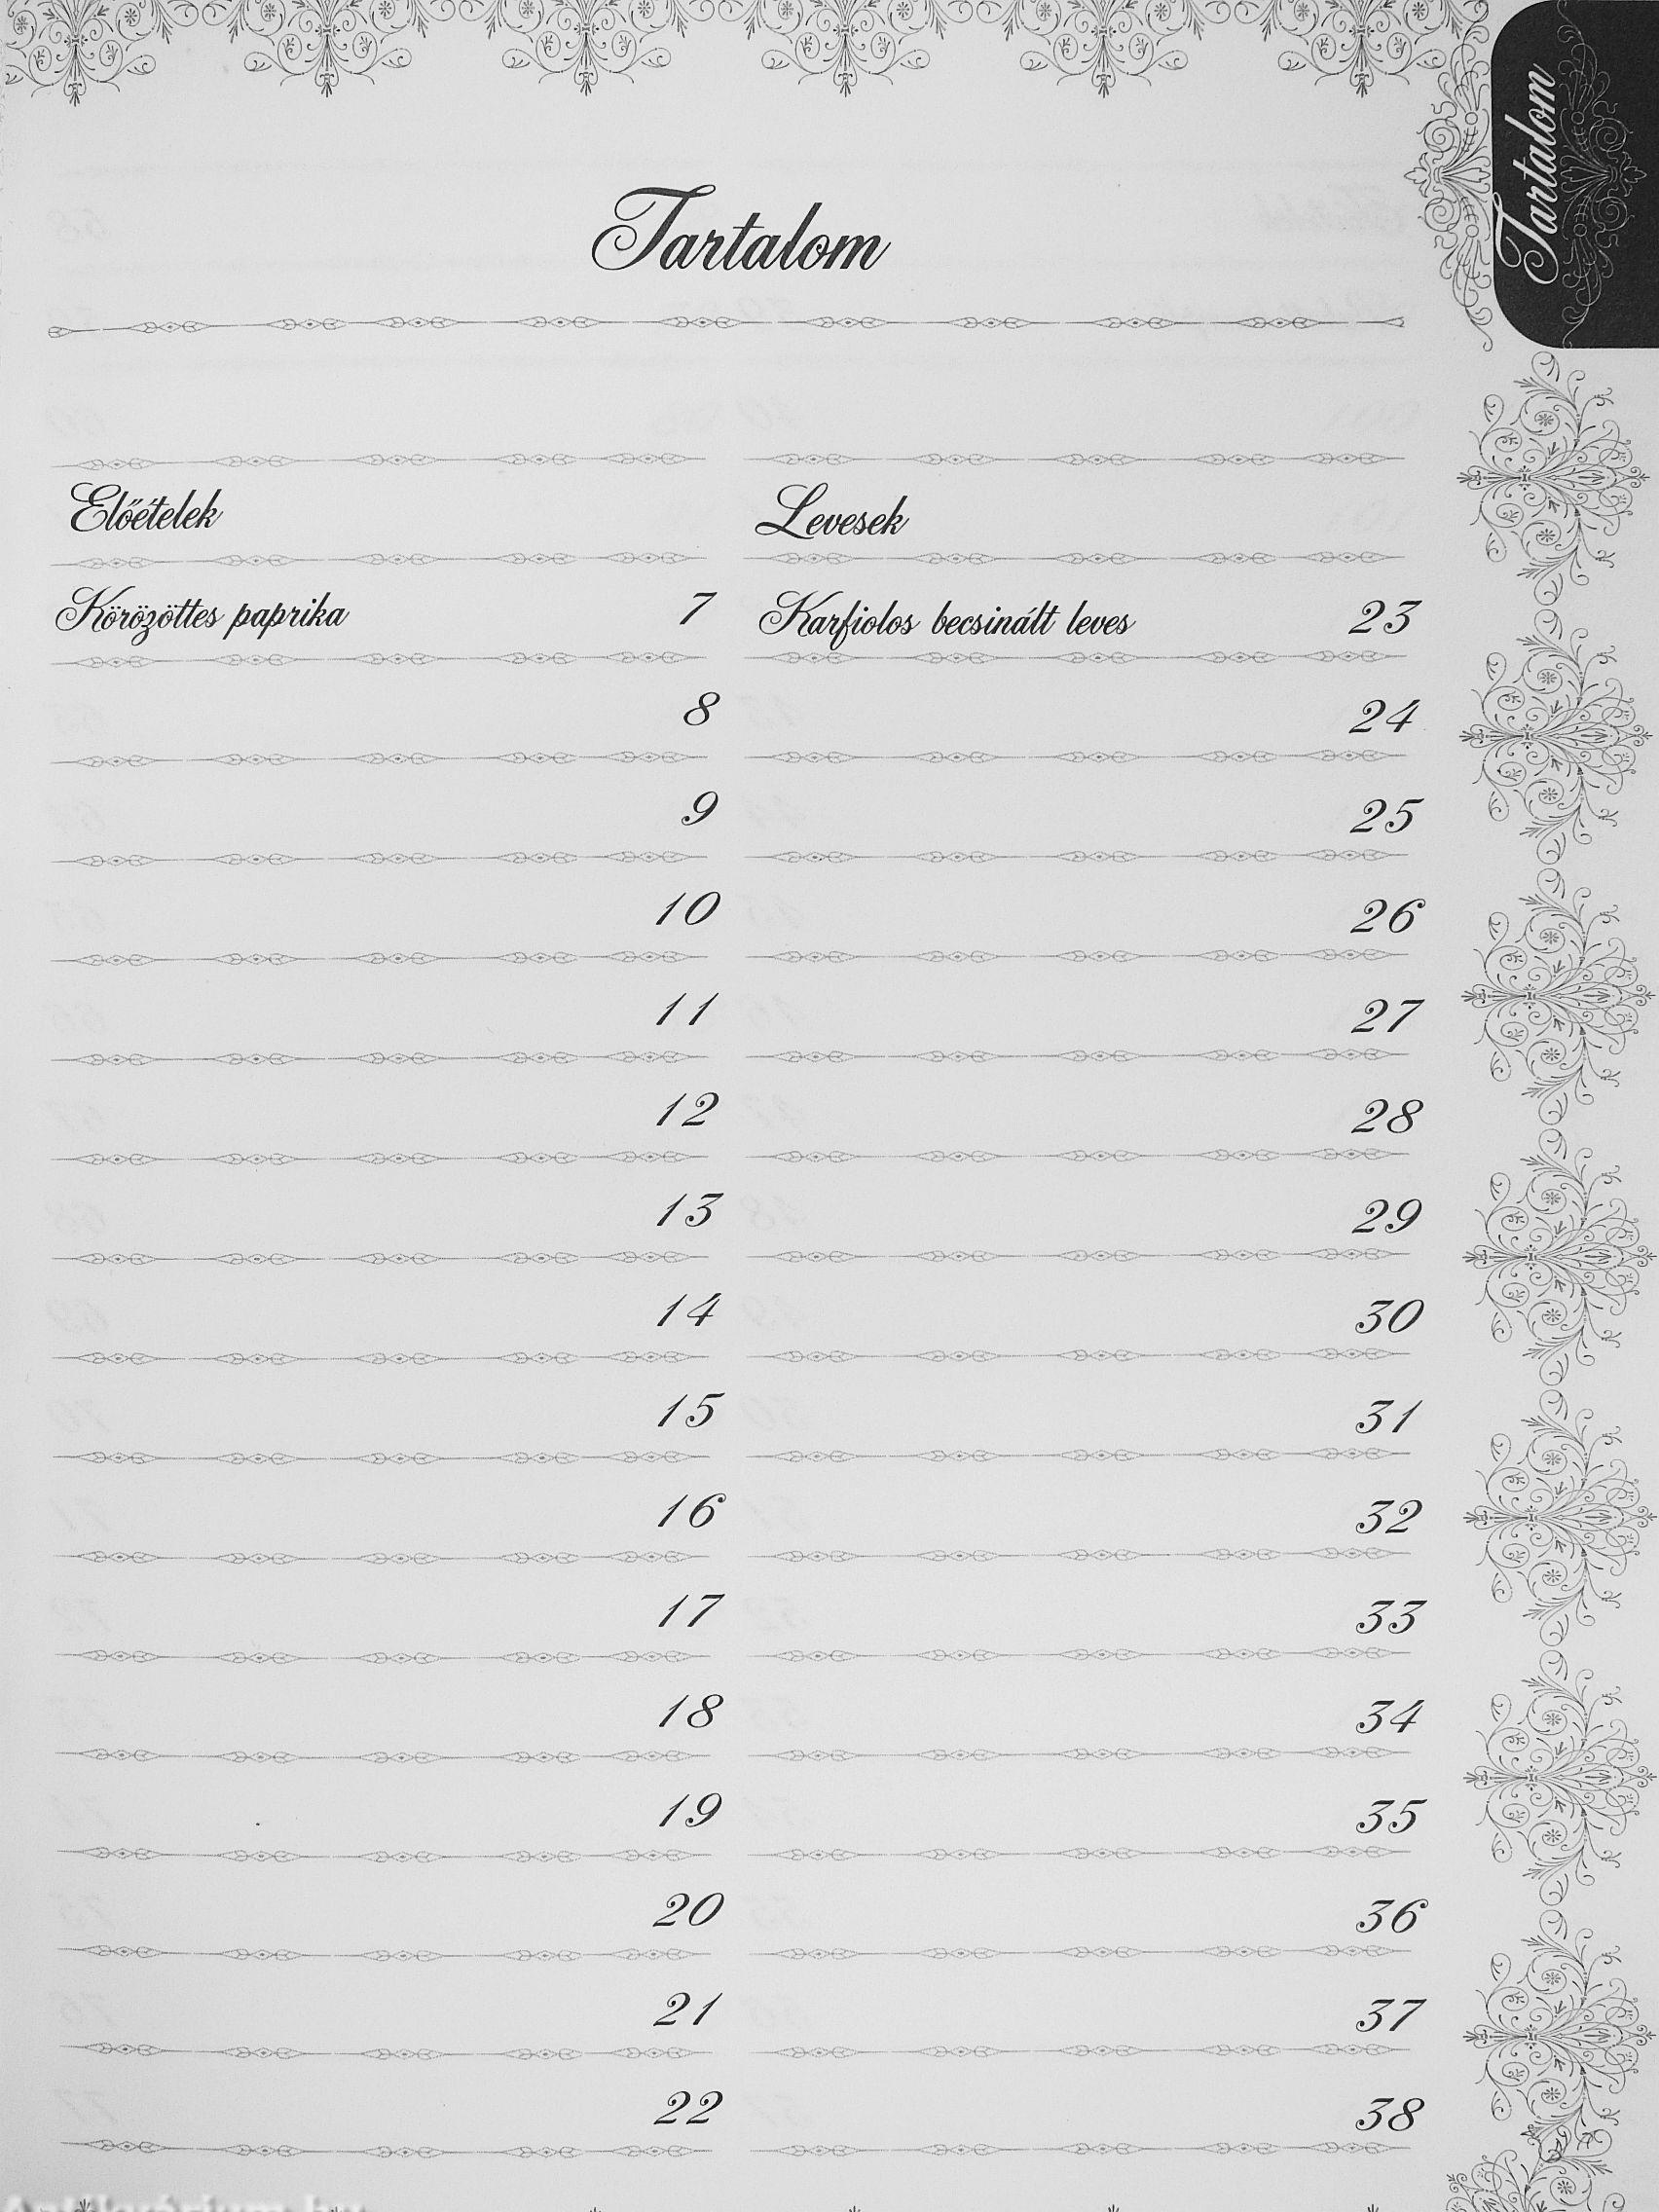 Tartalom
Tartalom
Előételek
Körözöttes paprika 7
8
9
10
11
12
13
14
15
16
17
18
19
20
21
22
Levesek
Karfiolos becsinált leves 23
24
25
26
27
28
29
30
31
32
33
34
35
36
37
38